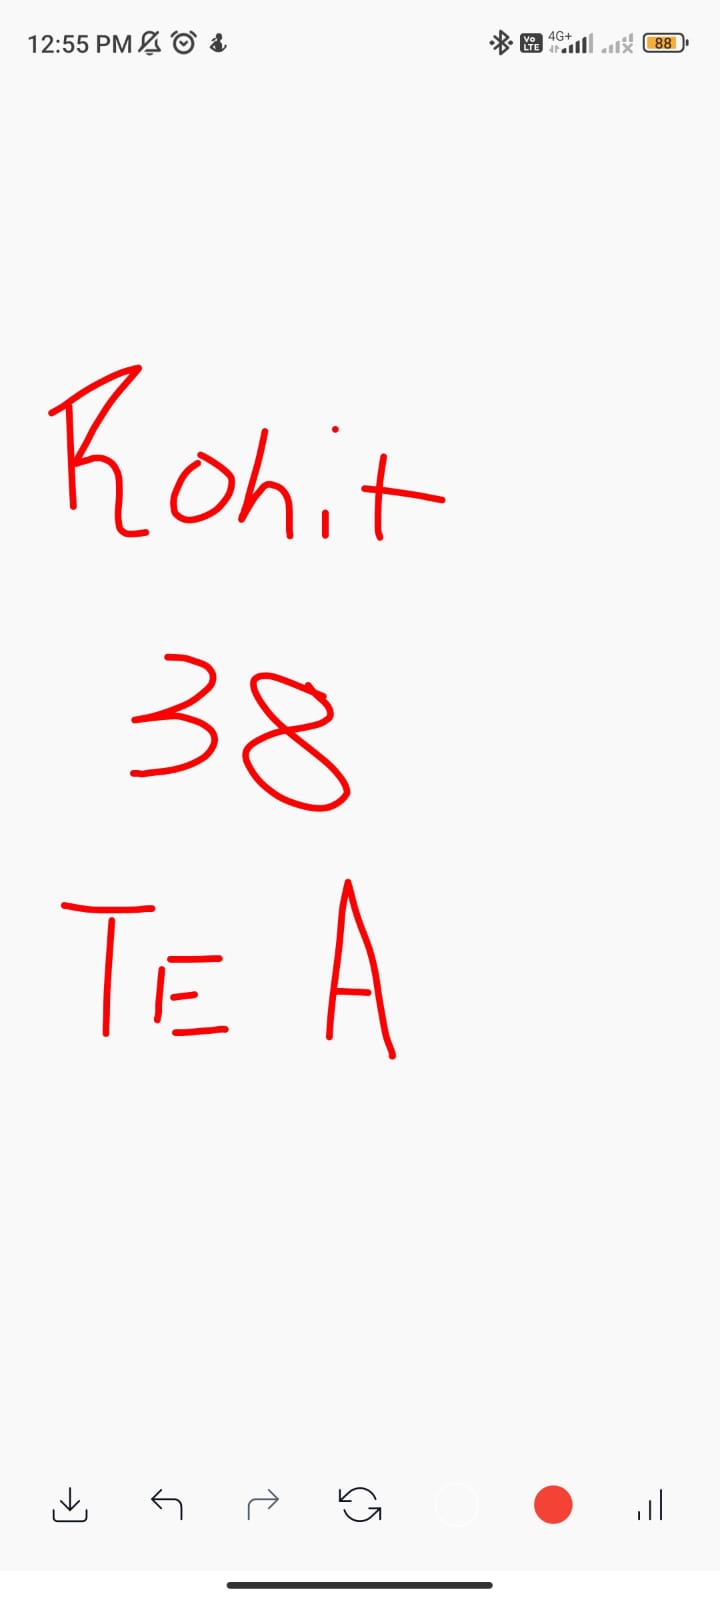 12:55 PM
Vo LTE 4G+ 88
Rohit
38
TE A